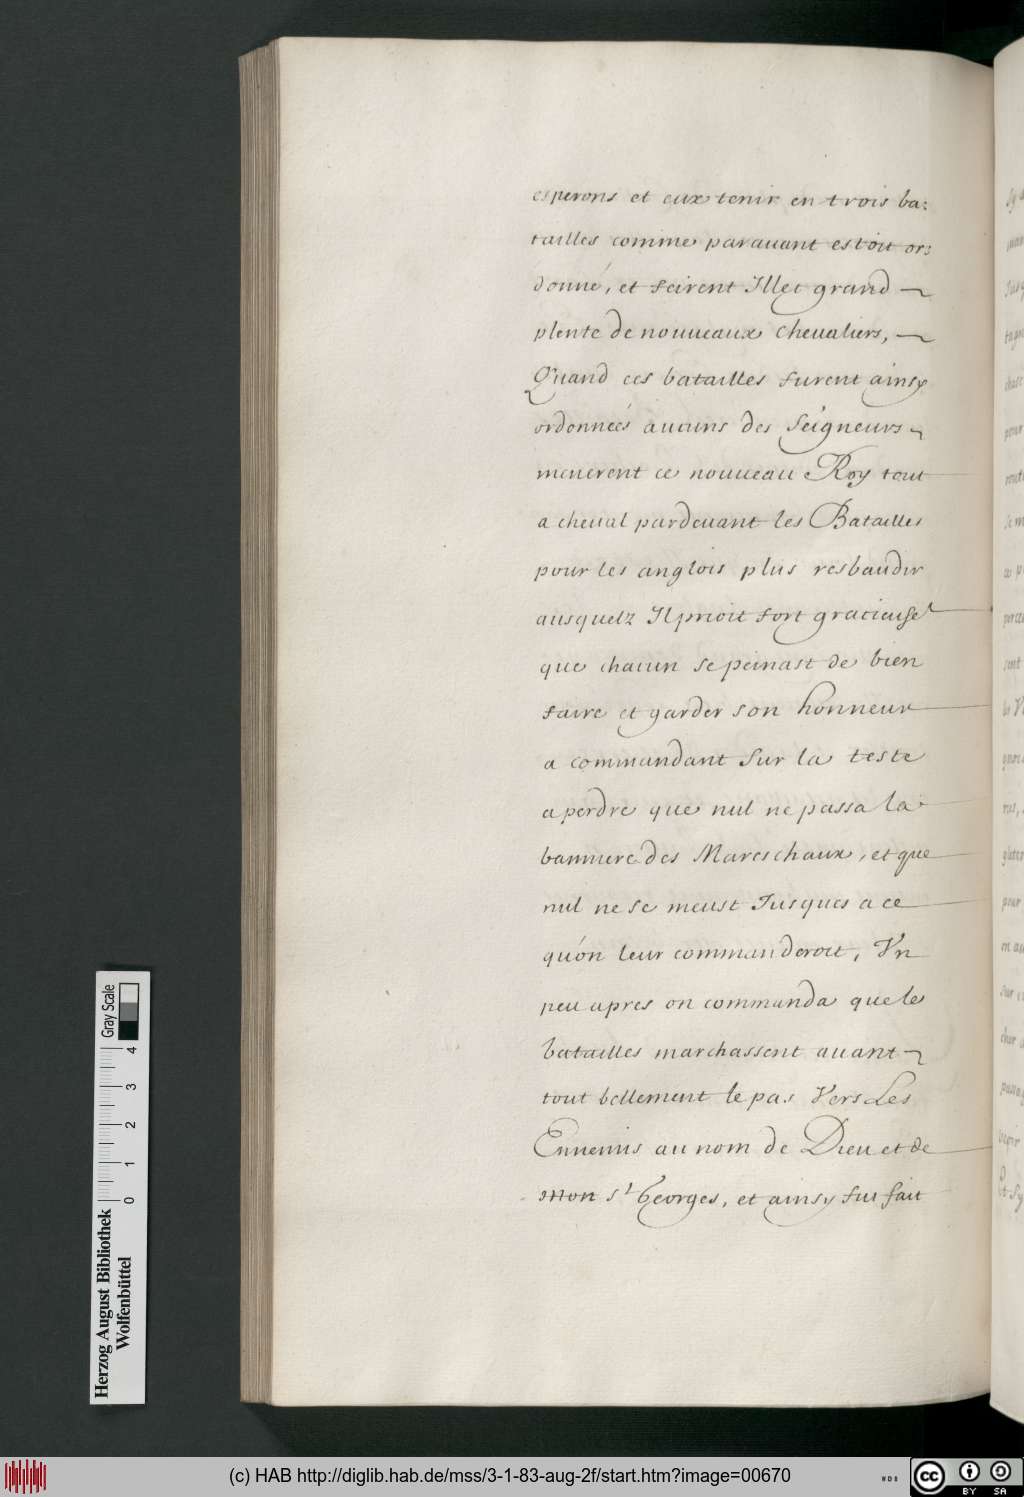 esperons et eux tenir en trois ba:
tailles comme parauant estoit or:
donné, et feirent Illec grand
plente de nouueaux cheualiers,
Quand ces batailles furent ainsy
ordonneés aucuns des seigneurs
menerent ce nouueau Roy tout
a cheual pardeuant les Batailles
pour les anglois plus resbaudir
ausquelz Il prioit fort gracieuset
que chacun se peinast de bien
faire et garder son honneur
a commandant sur la teste
a perdre que nul ne passa la
banniere des Mareschaux, et que
nul ne se meust Jusques a ce
qu'on leur commanderoit, Vn
peu apres on commanda que le
batailles marchassent auant
tout bellement le pas Vers Les
Ennemis au nom de Dieu et de
mon st Georges, et ainsy fut fait
Gray Scale
4
3
2
1
0
Herzog August Bibliothek
Wolfenbüttel
(c) HAB http://diglib.hab.de/mss/3-1-83-aug-2f/start.htm?image=00670
WDB
cc
BY SA